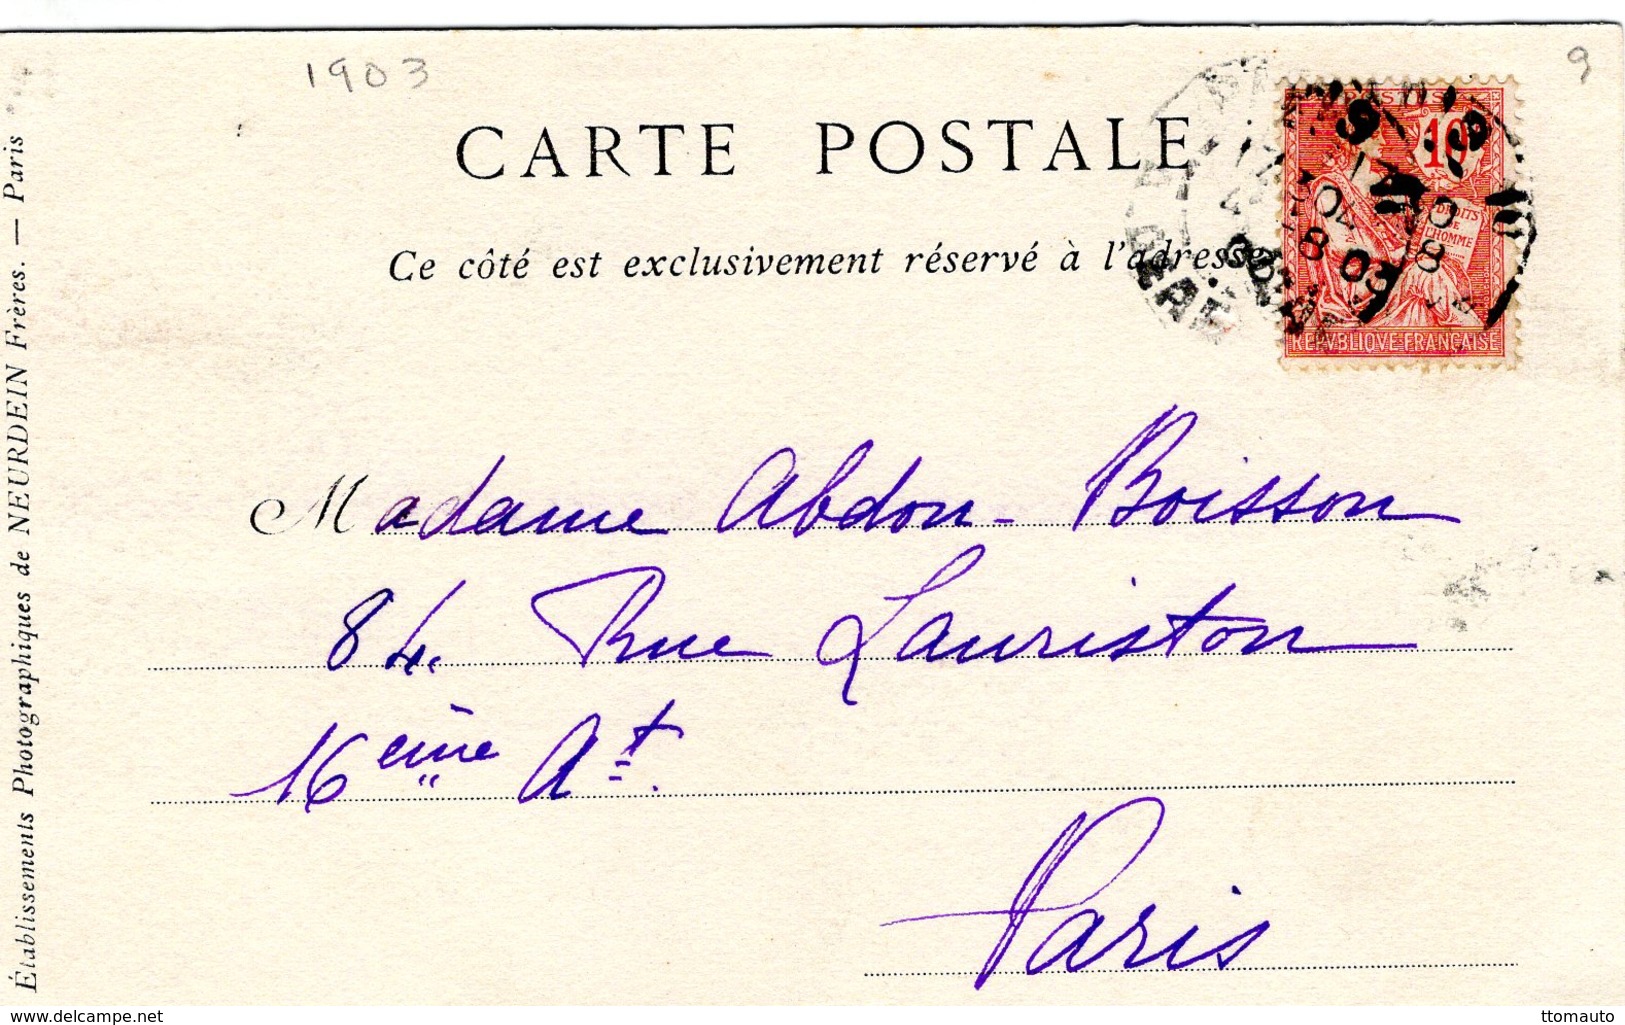 1903
9
CARTE POSTALE
Ce côté est exclusivement réservé à l'adresse
POSTES
10
DROITS DE L'HOMME
REPVBLIQVE FRANÇAISE
Madame Abdon-Boisson
84. Rue Lauriston
16eme At.
Paris
Établissements Photographiques de NEURDEIN Frères. — Paris
www.delcampe.net
ttomauto